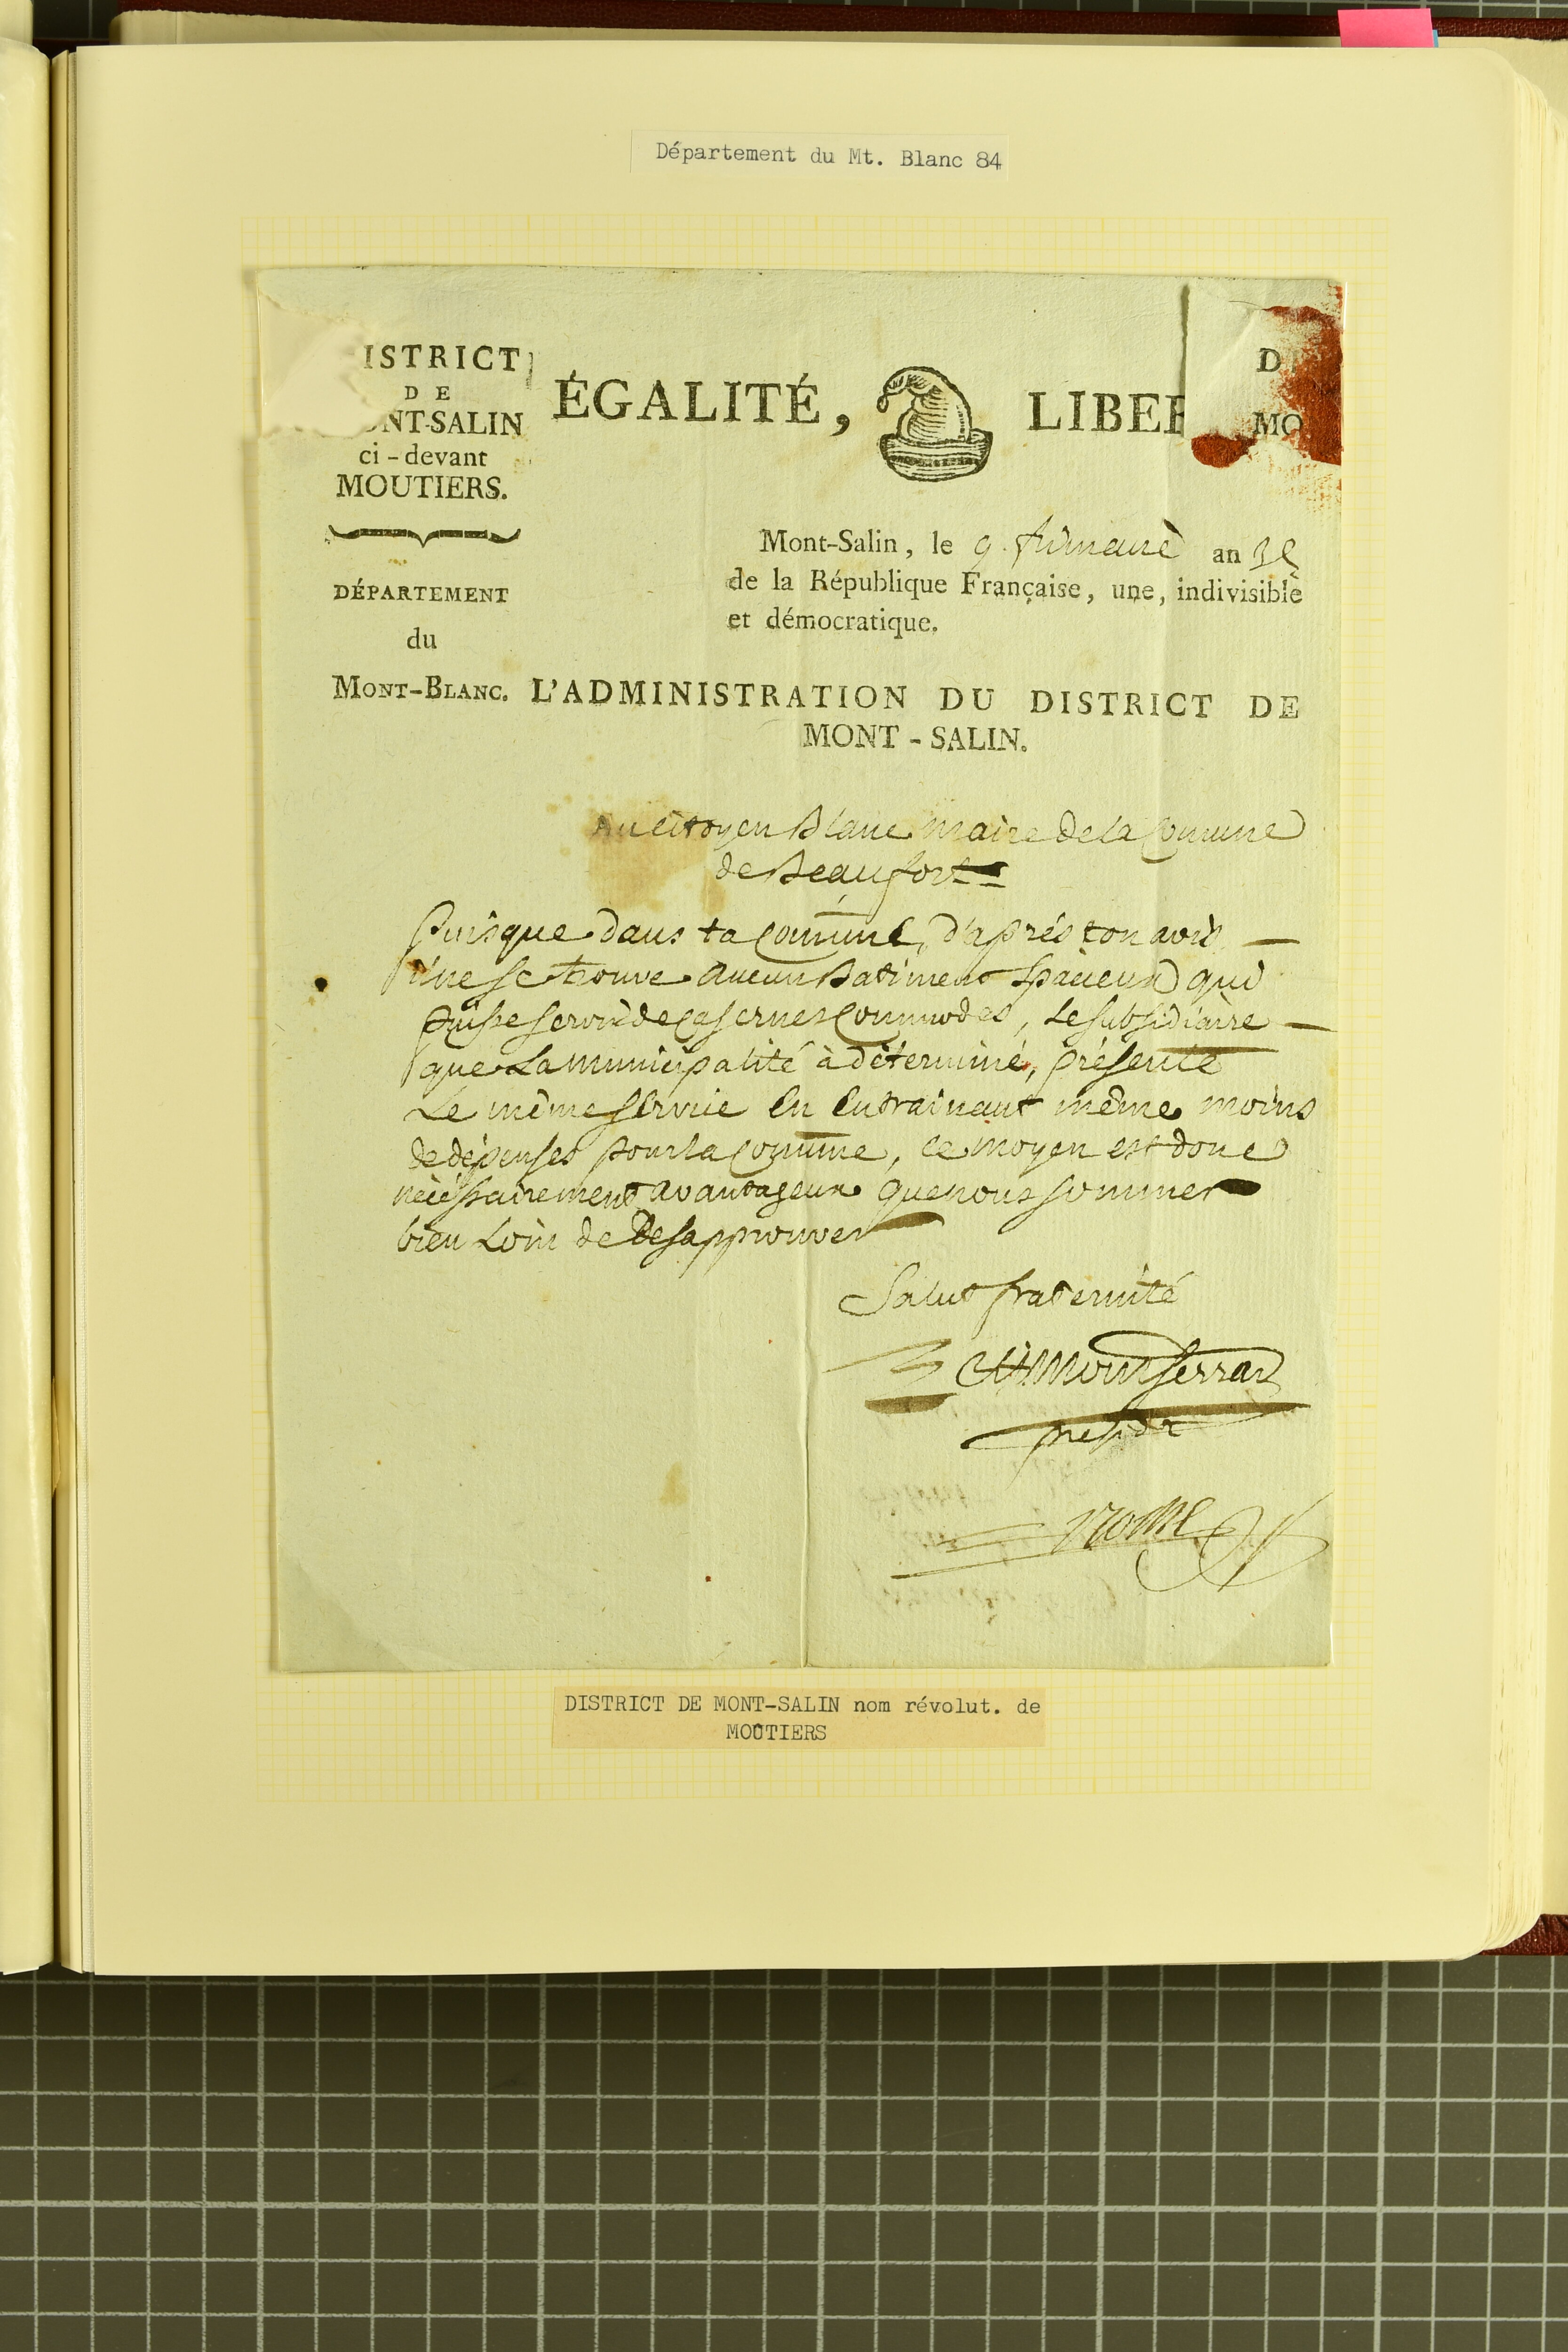 Département du Mt. Blanc 84
ISTRICT
DE
ONT-SALIN
ci-devant
MOUTIERS.
DÉPARTEMENT
du
MONT-BLANC.
ÉGALITÉ, LIBER
D
MO
Mont-Salin, le 9. frimaire an 3e
de la République Française, une, indivisible
et démocratique.
L'ADMINISTRATION DU DISTRICT DE
MONT-SALIN.
Au citoyen Blanc maire de la Comune
de Beaufort
Puisque dans ta Comune, d'aprés ton avis
il ne se trouve aucun Batiment spacieux qui
puisse servir de Casernes Commodes, le subsidiaire
que la municipalité à déterminé, présente
le même service en entrainant même moins
de dépenses pour la Comune, ce moyen est donc
nécéssairement avantageux que nous sommes
bien loin de Desapprouver
Salut fraternité
Montferrat
presidt
DISTRICT DE MONT-SALIN nom révolut. de
MOÛTIERS